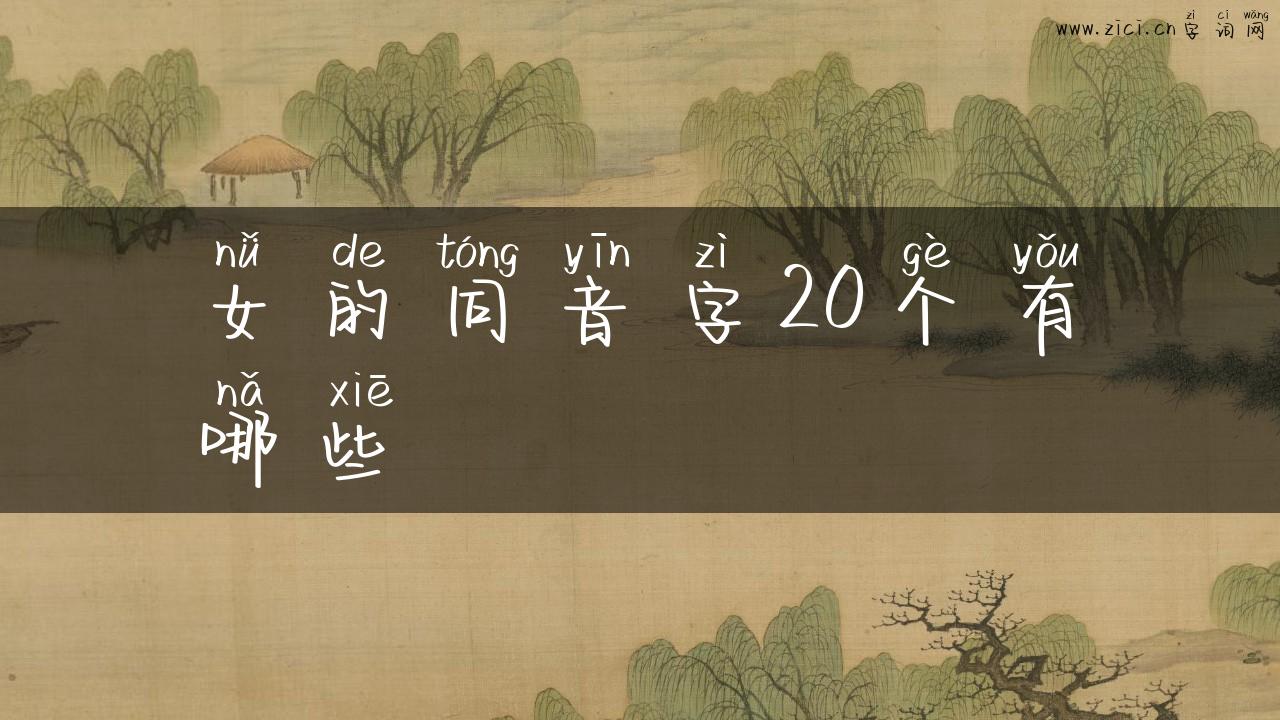 zì cí wǎng
www.zici.cn 字 词 网
nǚ de tóng yīn zì gè yǒu
女 的 同 音 字 20 个 有
nǎ xiē
哪 些